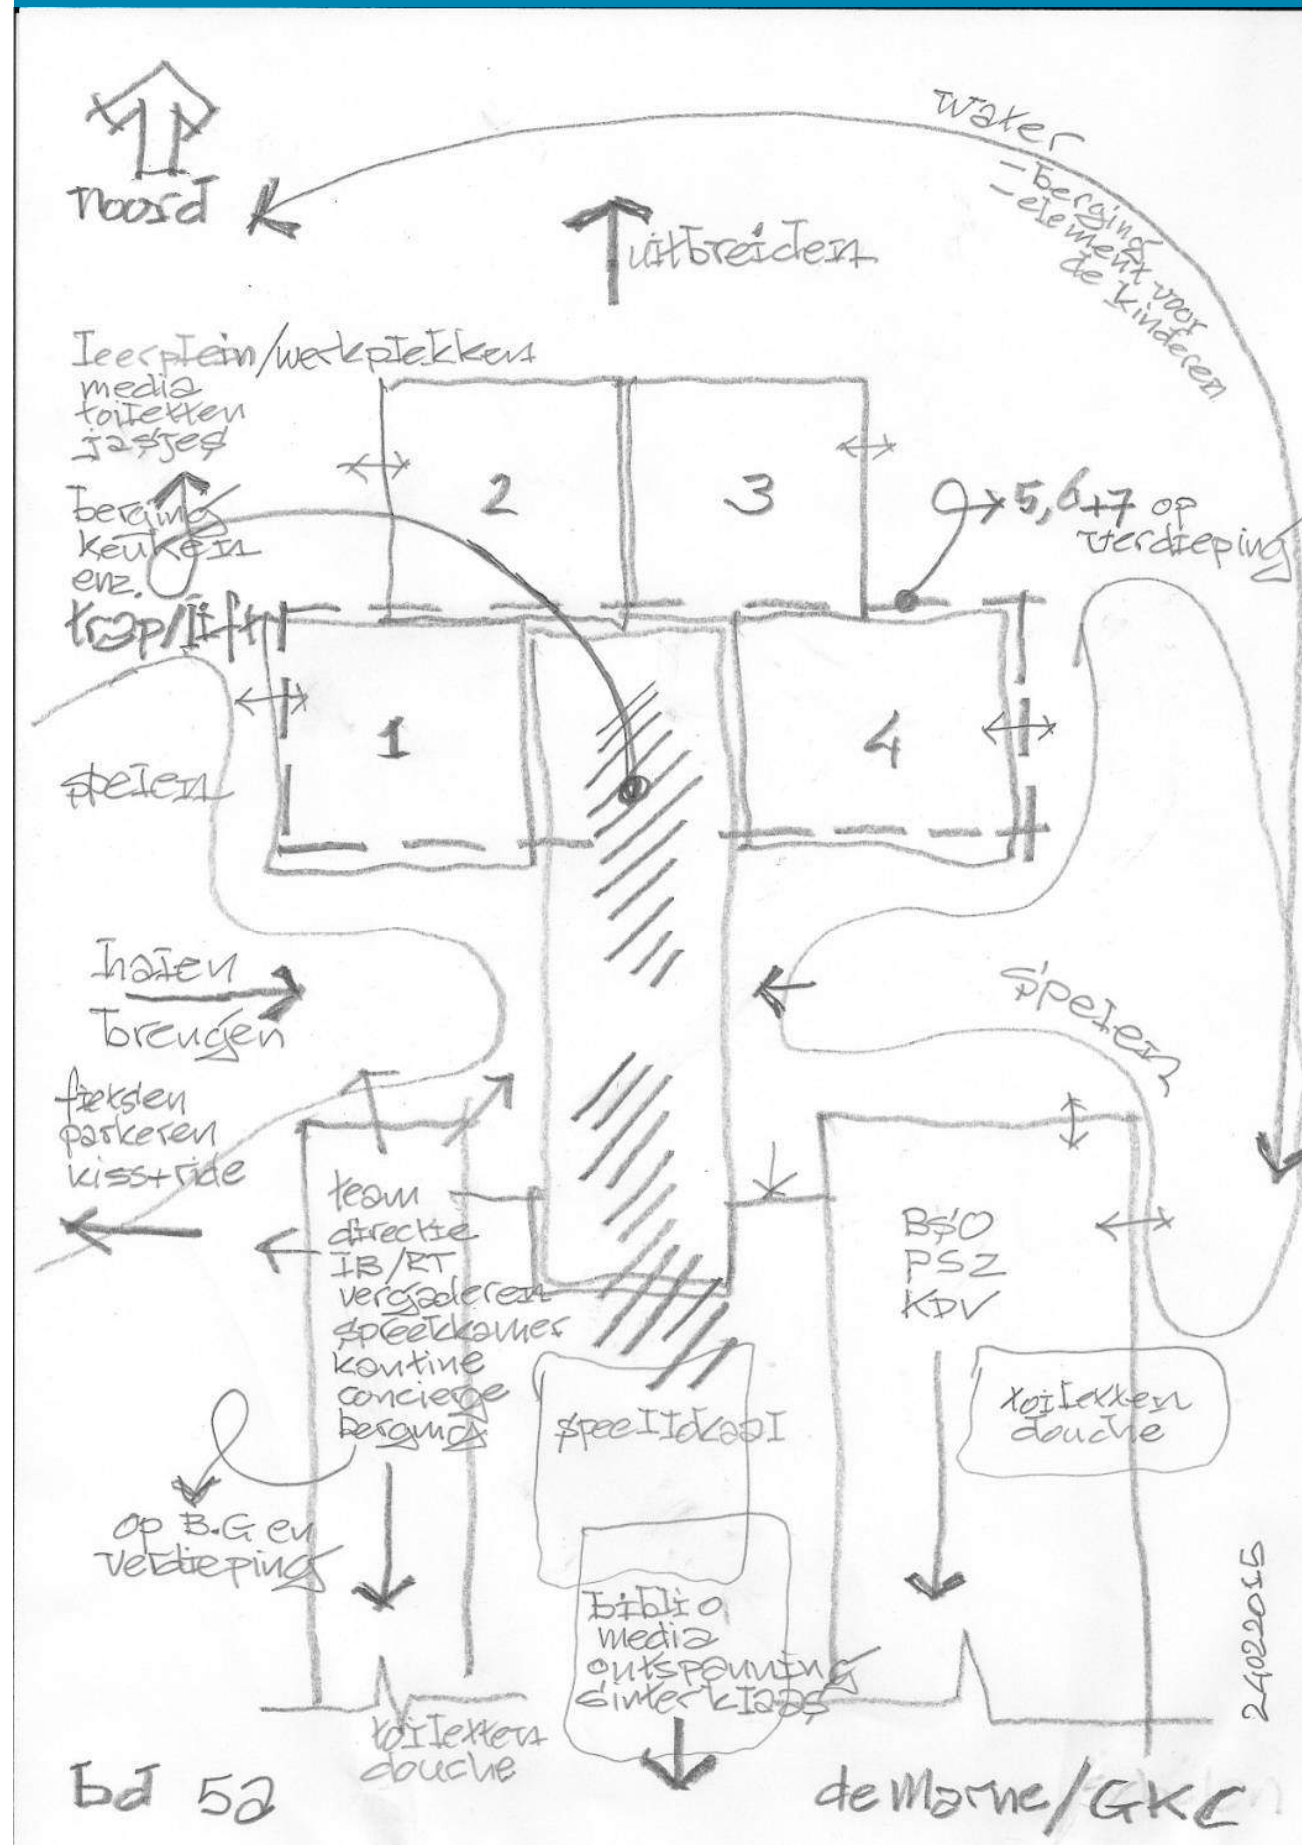 noord
water
- berging
- element voor
de kinderen
uitbreiden
leerplein/werkplekken
media
toiletten
jasjes
berging
keuken
enz.
trap/lift
2
3
5,6+7 op
verdieping
1
4
spelen
halen
brengen
spelen
fietsen
parkeren
kiss+ride
team
directie
IB/RT
vergaderen
spreekkamer
kantine
concierge
berging
BSO
PSZ
KDV
toiletten
douche
speellokaal
op B.G en
verdieping
biblio
media
ontspanning
sinterklaas
toiletten
douche
24022015
bd 5a
de Marne/GKC